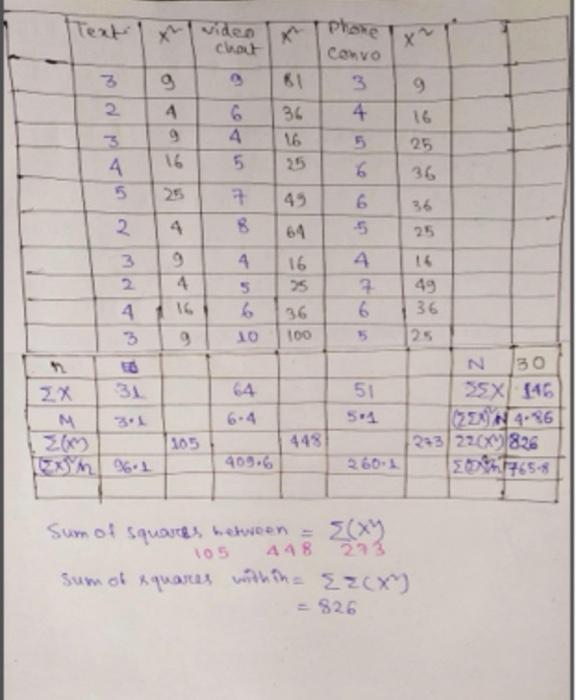 Text X² video chat X² Phone Convo X²
3 9 9 81 3 9
2 4 6 36 4 16
3 9 4 16 5 25
4 16 5 25 6 36
5 25 7 49 6 36
2 4 8 64 5 25
3 9 4 16 4 16
2 4 5 25 7 49
4 16 6 36 6 36
3 9 10 100 5 25
n N 30
ΣX 31 64 51 ΣΣX 146
M 3.1 6.4 5.1 (ΣΣX)²/N 4.86
Σ(X²) 105 448 273 ΣΣ(X²) 826
(ΣX)²/n 96.1 409.6 260.1 Σ(ΣX)²/n 765.8
Sum of squares between = Σ(X²)
105 448 273
Sum of squares within = ΣΣ(X²)
= 826